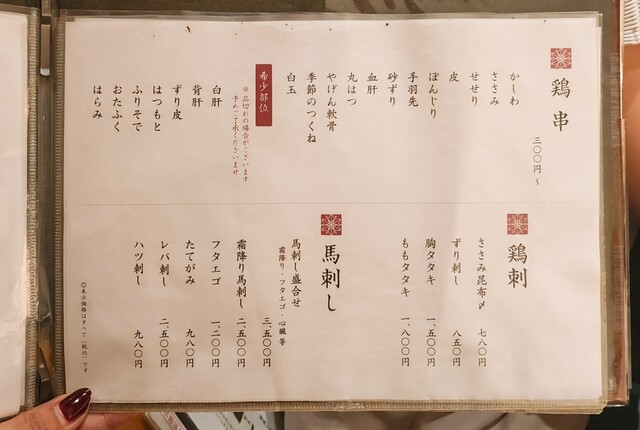 鶏串
三〇〇円〜
かしわ
ささみ
せせり
皮
ぼんじり
手羽先
砂ずり
血肝
丸はつ
やげん軟骨
季節のつくね
白玉
希少部位
※品切れの場合がございます
予めご了承くださいませ
白肝
背肝
ずり皮
はつもと
ふりそで
おたふく
はらみ
鶏刺
ささみ昆布〆 七八〇円
ずり刺し 八五〇円
胸タタキ 一、五〇〇円
ももタタキ 一、八〇〇円
馬刺し
馬刺し盛合せ
霜降り・フタエゴ・心臓 等
三、五〇〇円
霜降り馬刺し 二、五〇〇円
フタエゴ 一、二〇〇円
たてがみ 九八〇円
レバ刺し 二、五〇〇円
ハツ刺し 九八〇円
◎表示価格はすべて「税込」です